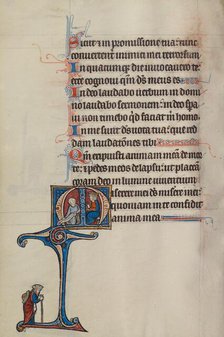 Sicut et in promissione tua: tunc
convertentur inimici mei retrorsum.
In quacumque die invocavero te:
ecce cognovi qm̄ deus meus es.
In deo laudabo verbum in domino
laudabo sermonem: in deo spa
vi non timebo qd faciat m homo.
In me sunt deus vota tua: que red
dam laudationes tibi.
Qm̄ eripuisti animam meā de mor
te: et pedes meos de lapsu: ut placeā
coram deo in lumine viventium.
Miserere mei deus miserere mei:
quoniam in te confidit
anima mea.